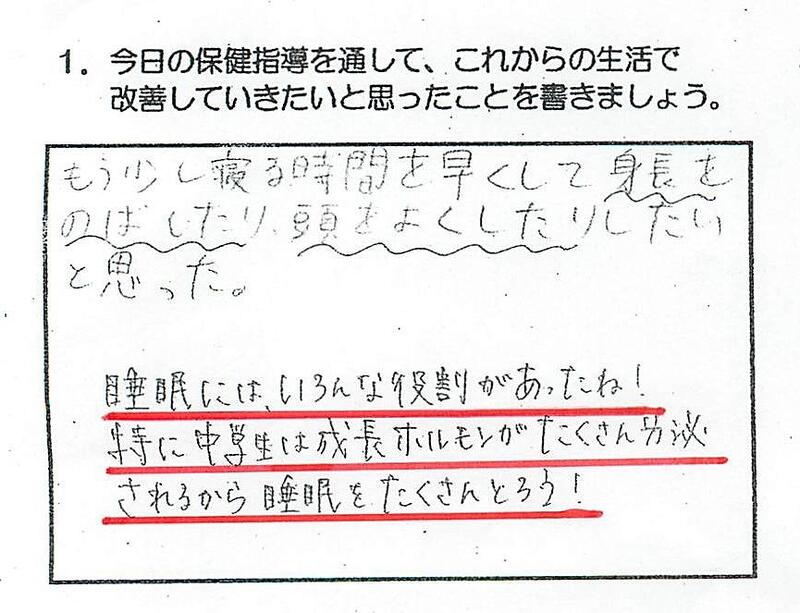 1. 今日の保健指導を通して、これからの生活で
改善していきたいと思ったことを書きましょう。
もう少し寝る時間を早くして身長を
のばしたり、頭をよくしたりしたい
と思った。
睡眠には、いろんな役割があったね!
特に中学生は成長ホルモンがたくさん分泌
されるから睡眠をたくさんとろう!